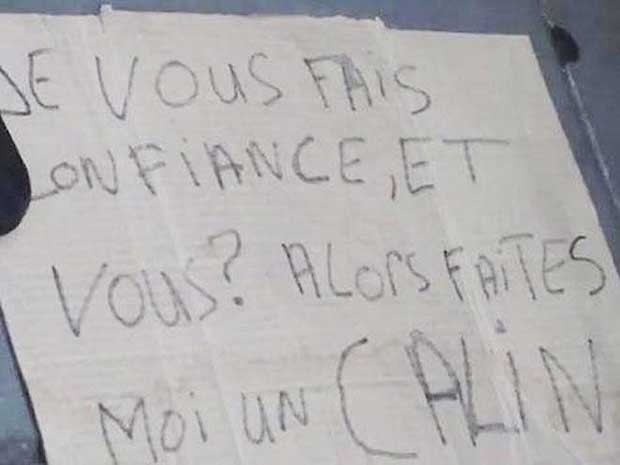 JE VOUS FAiS
CONFiANCE, ET
VOUS? ALORS FAiTES
MOi UN CALiN